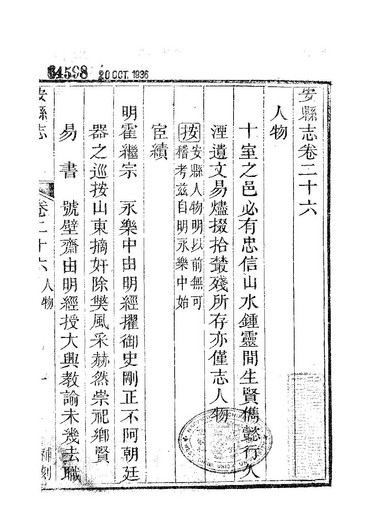 64598
20 OCT. 1936
安縣志卷二十六
人物
十室之邑必有忠信山水鍾靈間生賢儁懿行久
湮遺文易燼掇拾叢殘所存亦僅志人物
按安縣人物明以前無可
稽考茲自明永樂中始
宦績
明霍繼宗 永樂中由明經擢御史剛正不阿朝廷
器之巡按山東摘奸除獘風采赫然崇祀鄉賢
易書 號壁齋由明經授大興教諭未幾去職
安縣志
卷二十六 人物
一
補刻